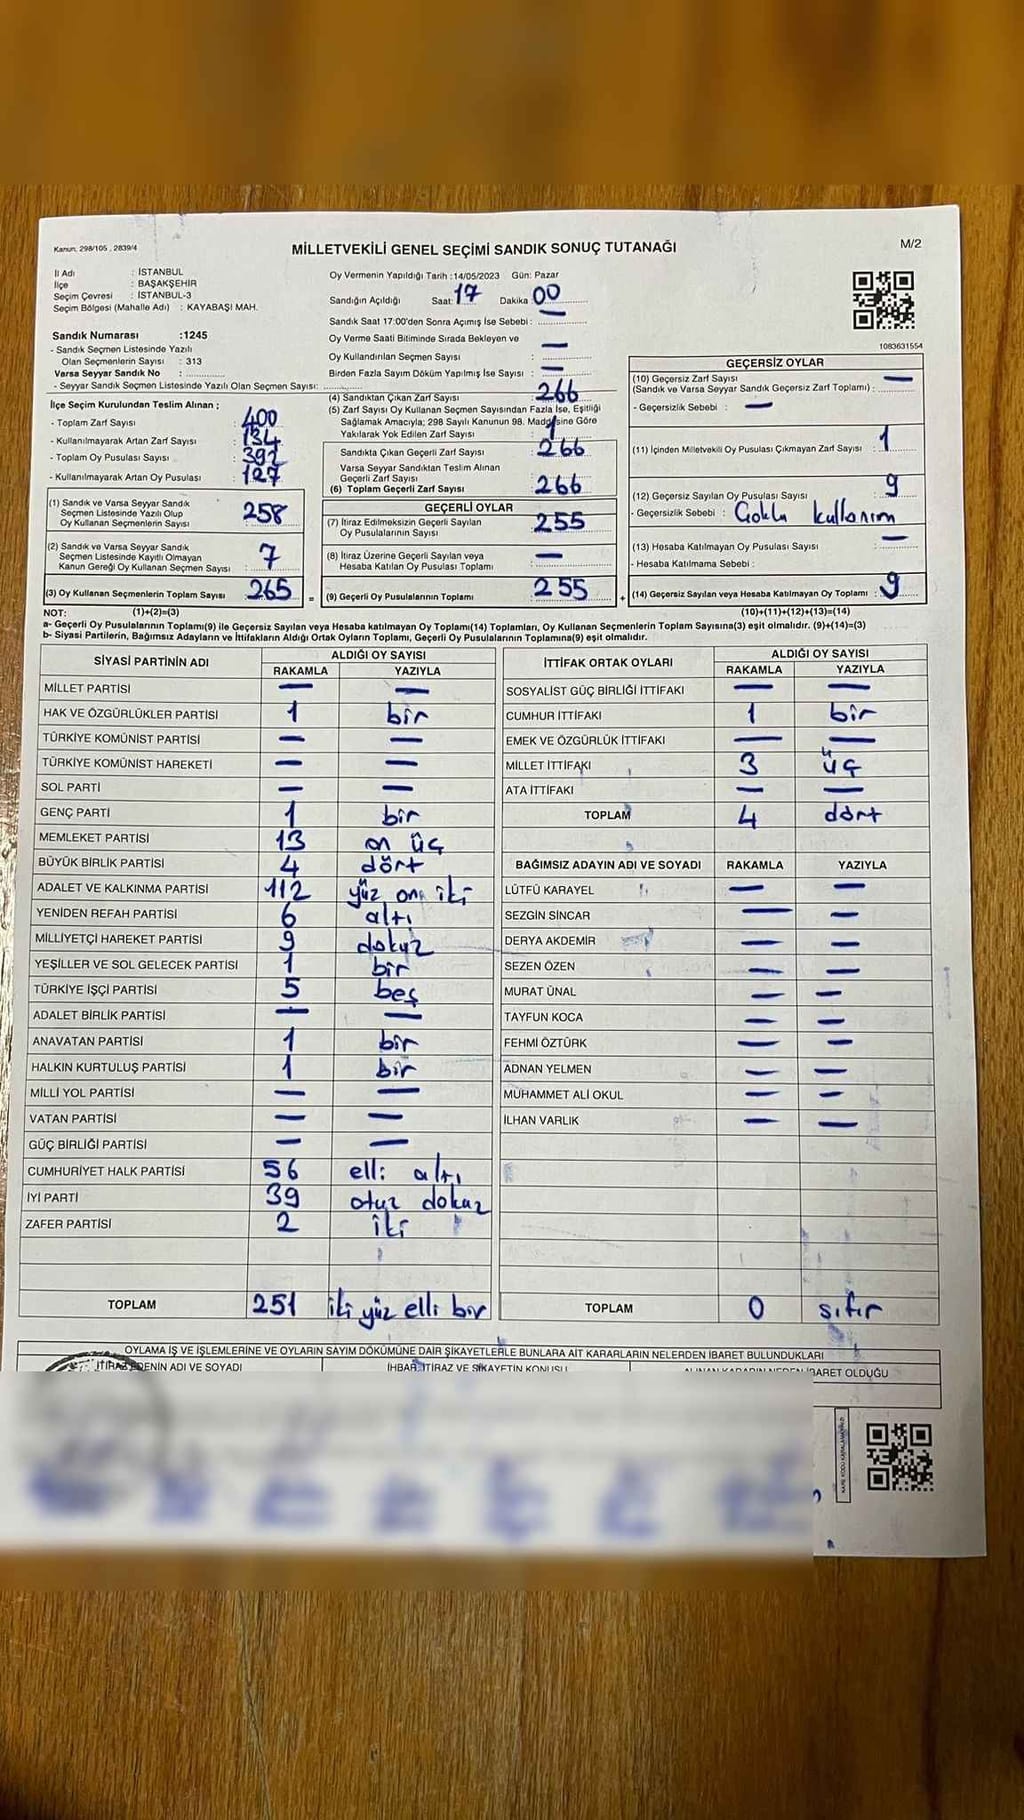 Kanun, 298/105 , 2839/4
MİLLETVEKİLİ GENEL SEÇİMİ SANDIK SONUÇ TUTANAĞI
M/2
İl Adı : İSTANBUL
İlçe : BAŞAKŞEHİR
Seçim Çevresi : İSTANBUL-3
Seçim Bölgesi (Mahalle Adı) : KAYABAŞI MAH.
Sandık Numarası :1245
- Sandık Seçmen Listesinde Yazılı
Olan Seçmenlerin Sayısı : 313
Varsa Seyyar Sandık No :
- Seyyar Sandık Seçmen Listesinde Yazılı Olan Seçmen Sayısı:
Oy Vermenin Yapıldığı Tarih :14/05/2023 Gün: Pazar
Sandığın Açıldığı Saat: 17 Dakika 00
Sandık Saat 17:00'den Sonra Açımış İse Sebebi : —
Oy Verme Saati Bitiminde Sırada Bekleyen ve
Oy Kullandırılan Seçmen Sayısı : —
Birden Fazla Sayım Döküm Yapılmış İse Sayısı : —
1083631554
İlçe Seçim Kurulundan Teslim Alınan ;
- Toplam Zarf Sayısı : 400
- Kullanılmayarak Artan Zarf Sayısı : 134
- Toplam Oy Pusulası Sayısı : 392
- Kullanılmayarak Artan Oy Pusulası : 127
(1) Sandık ve Varsa Seyyar Sandık
Seçmen Listesinde Yazılı Olup
Oy Kullanan Seçmenlerin Sayısı 258
(2) Sandık ve Varsa Seyyar Sandık
Seçmen Listesinde Kayıtlı Olmayan
Kanun Gereği Oy Kullanan Seçmen Sayısı : 7
(3) Oy Kullanan Seçmenlerin Toplam Sayısı 265
(4) Sandıktan Çıkan Zarf Sayısı 266
(5) Zarf Sayısı Oy Kullanan Seçmen Sayısından Fazla İse, Eşitliği
Sağlamak Amacıyla; 298 Sayılı Kanunun 98. Maddesine Göre
Yakılarak Yok Edilen Zarf Sayısı : 1
Sandıkta Çıkan Geçerli Zarf Sayısı 266
Varsa Seyyar Sandıktan Teslim Alınan
Geçerli Zarf Sayısı
(6) Toplam Geçerli Zarf Sayısı 266
GEÇERLİ OYLAR
(7) İtiraz Edilmeksizin Geçerli Sayılan
Oy Pusulalarının Sayısı 255
(8) İtiraz Üzerine Geçerli Sayılan veya
Hesaba Katılan Oy Pusulası Toplamı —
= (9) Geçerli Oy Pusulalarının Toplamı 255
GEÇERSİZ OYLAR
(10) Geçersiz Zarf Sayısı
(Sandık ve Varsa Seyyar Sandık Geçersiz Zarf Toplamı) : —
- Geçersizlik Sebebi : —
(11) İçinden Milletvekili Oy Pusulası Çıkmayan Zarf Sayısı 1
(12) Geçersiz Sayılan Oy Pusulası Sayısı 9
- Geçersizlik Sebebi : Çoklu kullanım
(13) Hesaba Katılmayan Oy Pusulası Sayısı —
- Hesaba Katılmama Sebebi :
+ (14) Geçersiz Sayılan veya Hesaba Katılmayan Oy Toplamı : 9
NOT: (1)+(2)=(3) (10)+(11)+(12)+(13)=(14)
a- Geçerli Oy Pusulalarının Toplamı(9) ile Geçersiz Sayılan veya Hesaba katılmayan Oy Toplamı(14) Toplamları, Oy Kullanan Seçmenlerin Toplam Sayısına(3) eşit olmalıdır. (9)+(14)=(3)
b- Siyasi Partilerin, Bağımsız Adayların ve İttifakların Aldığı Ortak Oyların Toplamı, Geçerli Oy Pusulalarının Toplamına(9) eşit olmalıdır.
SİYASİ PARTİNİN ADI ALDIĞI OY SAYISI
RAKAMLA YAZIYLA
MİLLET PARTİSİ — —
HAK VE ÖZGÜRLÜKLER PARTİSİ 1 bir
TÜRKİYE KOMÜNİST PARTİSİ — —
TÜRKİYE KOMÜNİST HAREKETİ — —
SOL PARTİ — —
GENÇ PARTİ 1 bir
MEMLEKET PARTİSİ 13 on üç
BÜYÜK BİRLİK PARTİSİ 4 dört
ADALET VE KALKINMA PARTİSİ 112 yüz on iki
YENİDEN REFAH PARTİSİ 6 altı
MİLLİYETÇİ HAREKET PARTİSİ 9 dokuz
YEŞİLLER VE SOL GELECEK PARTİSİ 1 bir
TÜRKİYE İŞÇİ PARTİSİ 5 beş
ADALET BİRLİK PARTİSİ — —
ANAVATAN PARTİSİ 1 bir
HALKIN KURTULUŞ PARTİSİ 1 bir
MİLLİ YOL PARTİSİ — —
VATAN PARTİSİ — —
GÜÇ BİRLİĞİ PARTİSİ — —
CUMHURİYET HALK PARTİSİ 56 elli altı
İYİ PARTİ 39 otuz dokuz
ZAFER PARTİSİ 2 iki
TOPLAM 251 iki yüz elli bir
İTTİFAK ORTAK OYLARI ALDIĞI OY SAYISI
RAKAMLA YAZIYLA
SOSYALİST GÜÇ BİRLİĞİ İTTİFAKI — —
CUMHUR İTTİFAKI 1 bir
EMEK VE ÖZGÜRLÜK İTTİFAKI — —
MİLLET İTTİFAKI 3 üç
ATA İTTİFAKI — —
TOPLAM 4 dört
BAĞIMSIZ ADAYIN ADI VE SOYADI RAKAMLA YAZIYLA
LÜTFÜ KARAYEL — —
SEZGİN SİNCAR — —
DERYA AKDEMİR — —
SEZEN ÖZEN — —
MURAT ÜNAL — —
TAYFUN KOCA — —
FEHMİ ÖZTÜRK — —
ADNAN YELMEN — —
MUHAMMET ALİ OKUL — —
İLHAN VARLIK — —
TOPLAM 0 sıfır
OYLAMA İŞ VE İŞLEMLERİNE VE OYLARIN SAYIM DÖKÜMÜNE DAİR ŞİKAYETLERLE BUNLARA AİT KARARLARIN NELERDEN İBARET BULUNDUKLARI
İTİRAZ EDENİN ADI VE SOYADI İHBAR, İTİRAZ VE ŞİKAYETİN KONUSU ALINAN KARARIN NEDEN İBARET OLDUĞU